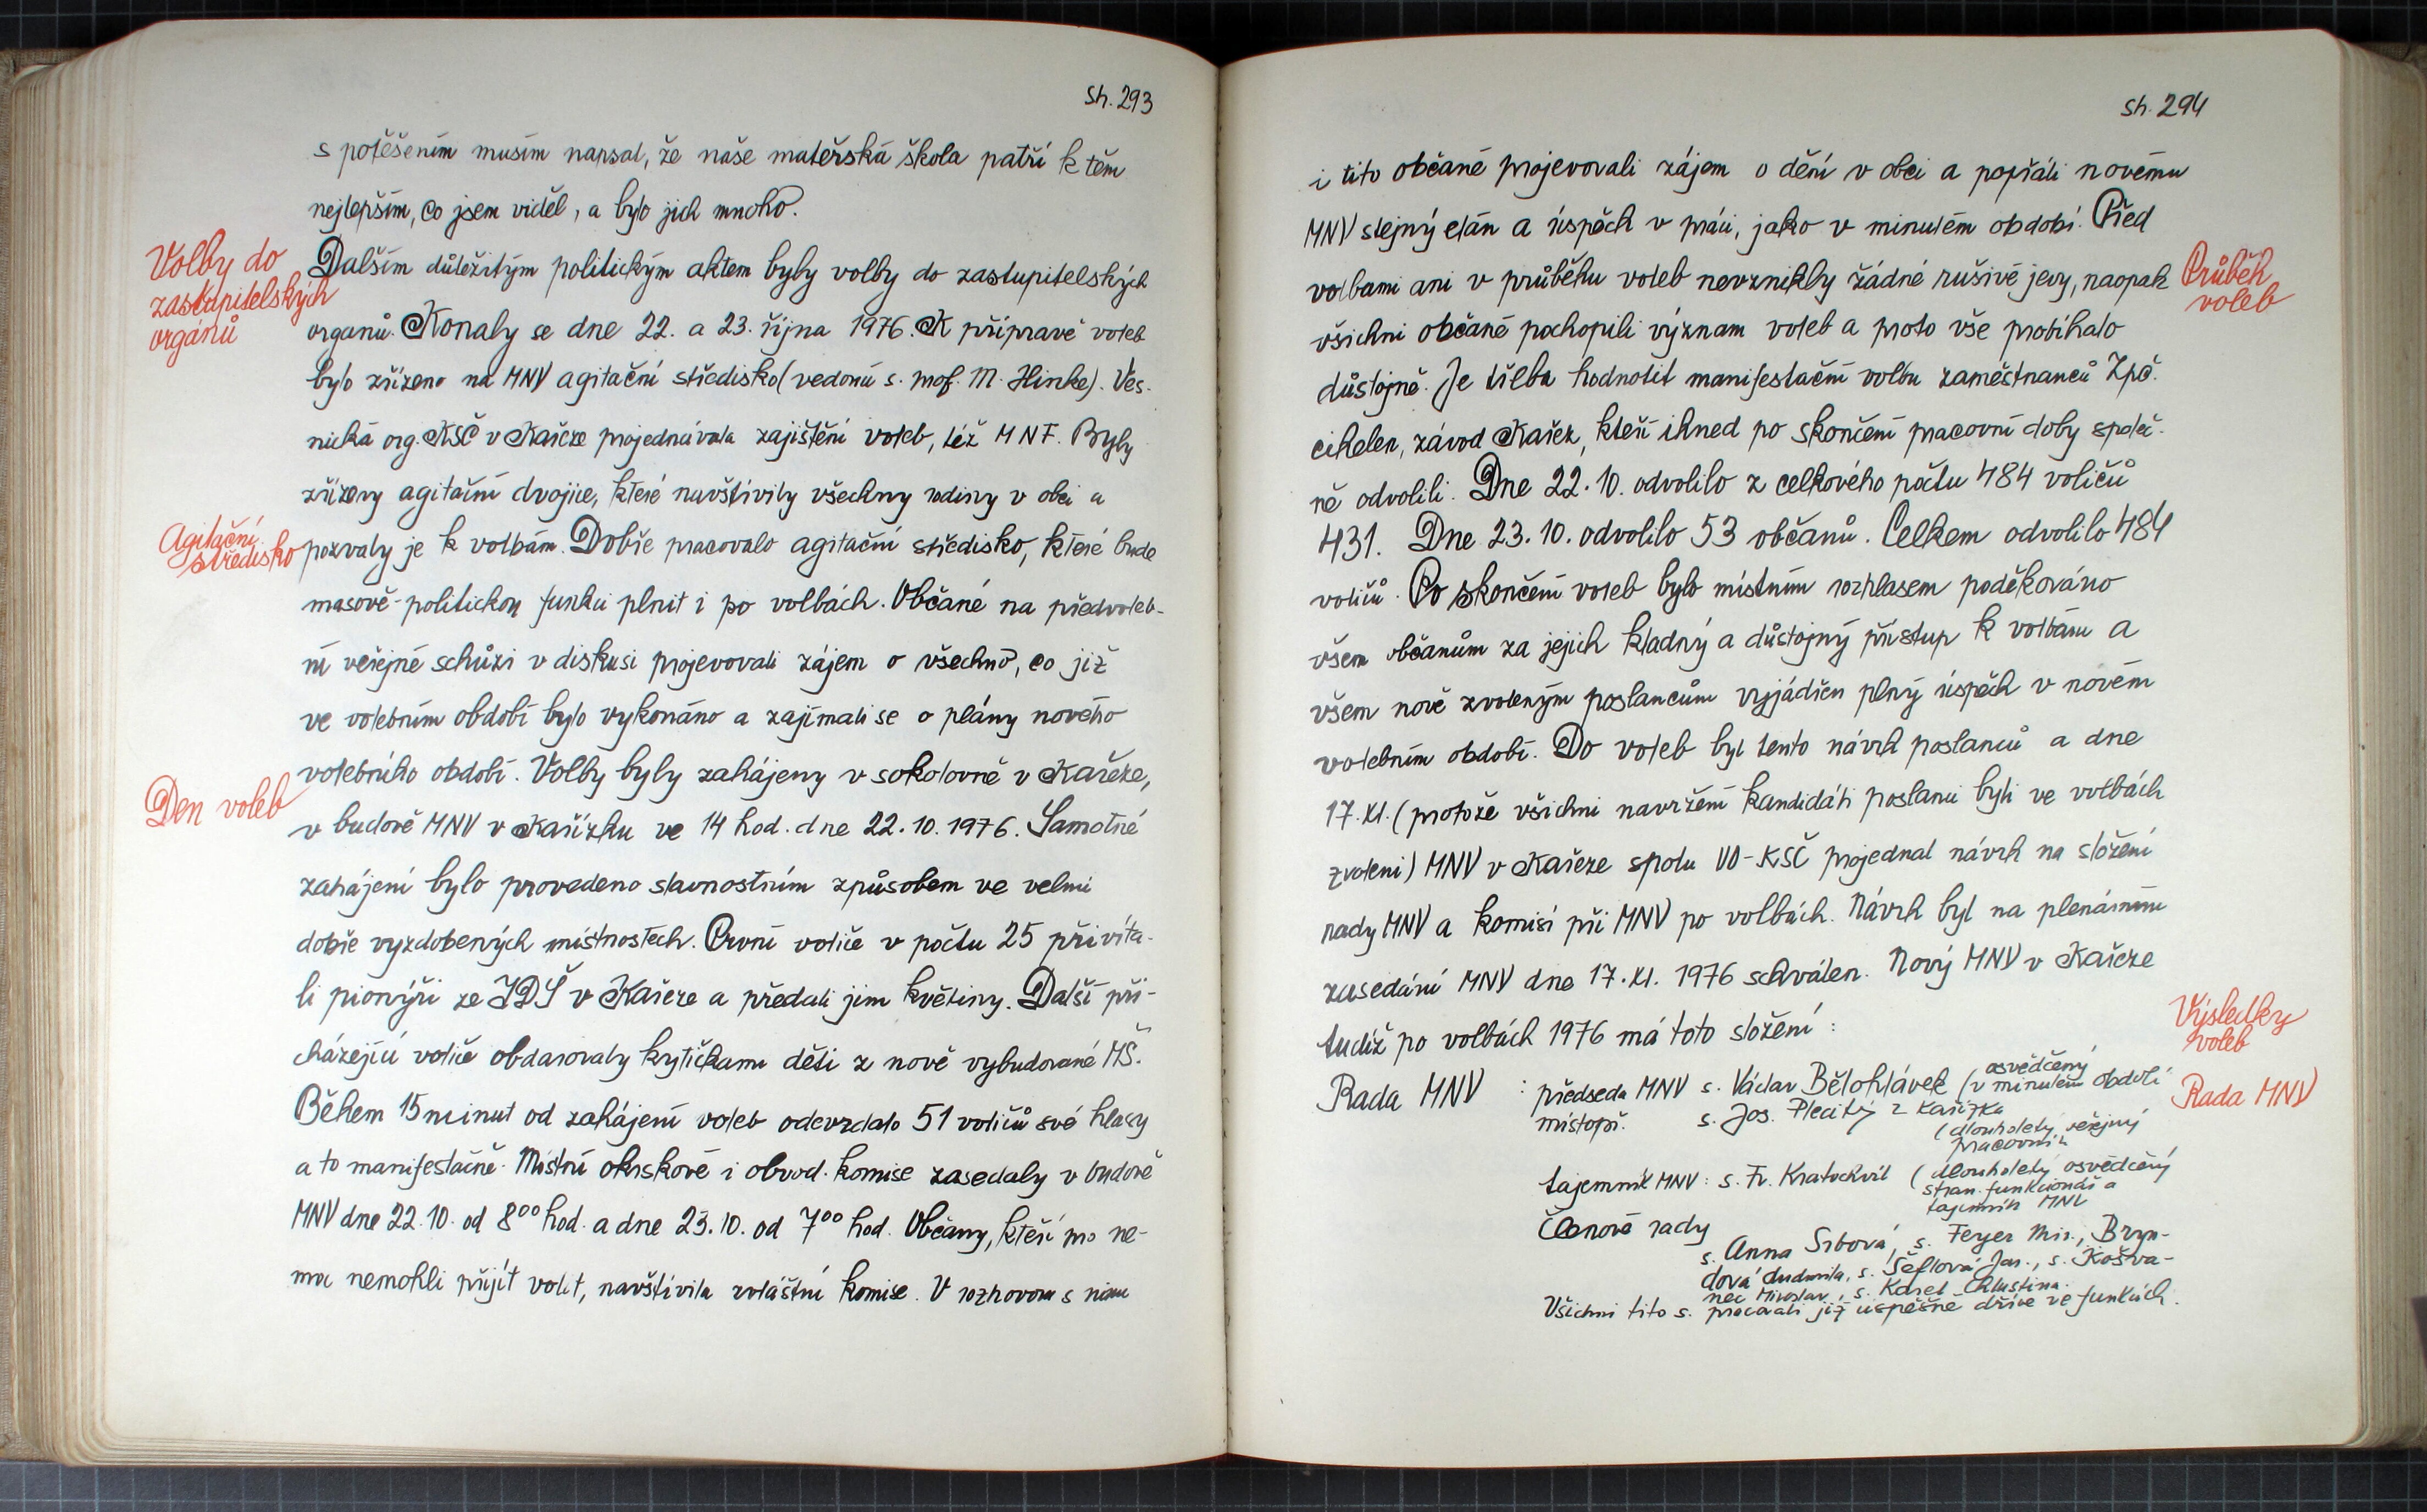 Str. 293
s potěšením musím napsat, že naše mateřská škola patří k těm
nejlepším, co jsem viděl, a bylo jich mnoho.
Volby do
zastupitelských
orgánů
Dalším důležitým politickým aktem byly volby do zastupitelských
organů. Konaly se dne 22. a 23. října 1976. K přípravě voleb
bylo zřízeno na MNV agitační středisko (vedoucí s. prof. M. Hinke). Ves-
nická org. KSČ v Kařeze projednávala zajištění voleb, též MNF. Byly
zřízeny agitační dvojice, které navštívily všechny rodiny v obci a
Agitační
středisko
pozvaly je k volbám. Dobře pracovalo agitační středisko, které bude
masově-politickou funkci plnit i po volbách. Občané na předvoleb-
ní veřejné schůzi v diskusi projevovali zájem o všechno, co již
ve volebním období bylo vykonáno a zajímali se o plány nového
volebního období. Volby byly zahájeny v sokolovně v Kařeze,
Den voleb
v budově MNV v Kařízku ve 14 hod. dne 22.10.1976. Samotné
zahájení bylo provedeno slavnostním způsobem ve velmi
dobře vyzdobených místnostech. První voliče v počtu 25 přivíta-
li pionýři ze ZDŠ v Kařeze a předali jim květiny. Další při-
cházející voliče obdarovaly kytičkami děti z nově vybudované MŠ.
Během 15 minut od zahájení voleb odevzdalo 51 voličů své hlasy
a to manifestačně. Místní okrskové i obvod. komise zasedaly v budově
MNV dne 22.10. od 8⁰⁰ hod. a dne 23.10. od 7⁰⁰ hod. Občany, kteří pro ne-
moc nemohli přijít volit, navštívila zvláštní komise. V rozhovoru s nimi
Str. 294
i tito občané projevovali zájem o dění v obci a popřáli novému
MNV stejný elán a úspěch v práci, jako v minulém období. Před
volbami ani v průběhu voleb nevznikly žádné rušivé jevy, naopak
Průběh
voleb
všichni občané pochopili význam voleb a proto vše probíhalo
důstojně. Je třeba hodnotit manifestační volbu zaměstnanců Zpč.
cihelen, závod Kařez, kteří ihned po skončení pracovní doby společ-
ně odvolili. Dne 22.10. odvolilo z celkového počtu 484 voličů
431. Dne 23.10. odvolilo 53 občanů. Celkem odvolilo 484
voličů. Po skončení voleb bylo místním rozhlasem poděkováno
všem občanům za jejich kladný a důstojný přístup k volbám a
všem nově zvoleným poslancům vyjádřen plný úspěch v novém
volebním období. Do voleb byl tento návrh poslanců a dne
17.XI. (protože všichni navržení kandidáti poslanci byli ve volbách
zvoleni) MNV v Kařeze spolu VO-KSČ projednal návrh na složení
rady MNV a komisí při MNV po volbách. Návrh byl na plenárním
zasedání MNV dne 17.XI. 1976 schválen. Nový MNV v Kařeze
tudíž po volbách 1976 má toto složení:
Výsledky
voleb
Rada MNV : předseda MNV s. Václav Bělohlávek (osvědčený
v minulém období
Rada MNV
místopř. s. Jos. Plecitý z Kařízka
(dlouholetý veřejný
pracovník
tajemník MNV: s. Fr. Kratochvíl (dlouholetý osvědčený
stran. funkcionář a
tajemník MNV
Členové rady
s. Anna Srbová, s. Feyer Mir., Bryn-
dová Ludmila, s. Šeflová Jar., s. Košva-
nec Miroslav, s. Karel Chlustina.
Všichni tito s. pracovali již úspěšně dříve ve funkcích.